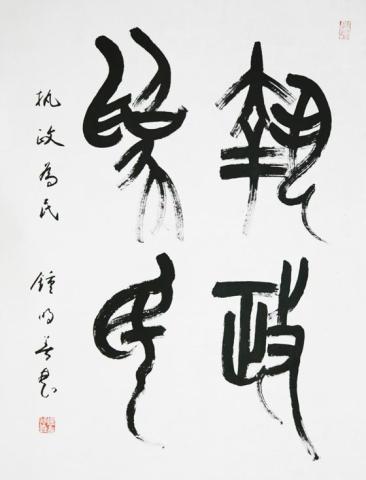 執政
為民
执政為民 鍾明善书